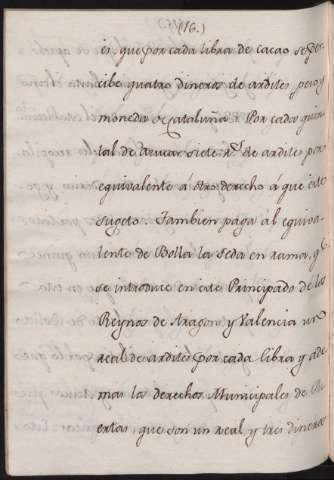 (16.)
es, que por cada libra de cacao se per
cibe quatro dineros de ardites peso y
moneda de Cataluña. Por cada quin
tal de Azucar siete r.s de ardites por
equivalente á otro derecho á que esté
sugeto. Tambien paga al equiva-
lente de Bolla la seda en rama, q.e
se introduce en este Principado de los
Reynos de Aragon y Valencia un
real de ardites por cada libra y ade
mas los derechos Municipales de
ertas, que son un real y tres dineros